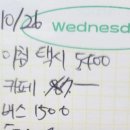 10/26
Wednesd
아침 택시 5400
카페
버스 1500